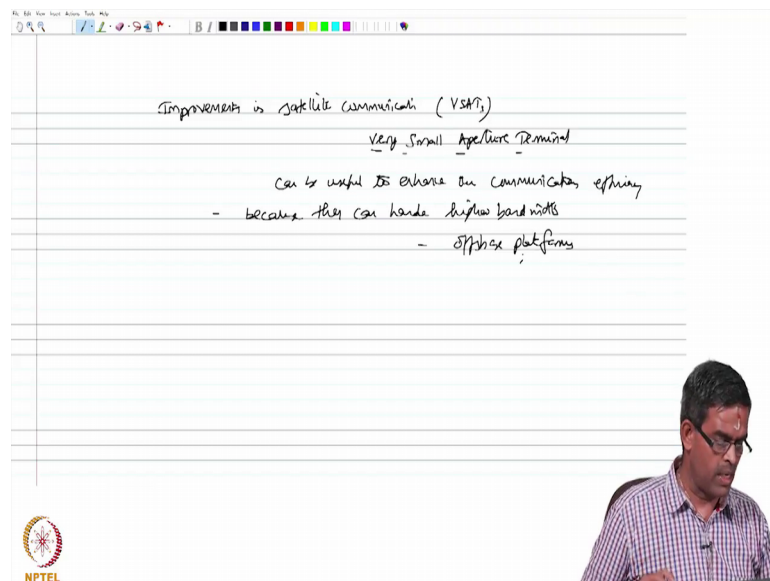 File Edit View Insert Actions Tools Help
B I
Improvements is satellite communicati (VSATs)
Very Small Aperture Terminal
can be useful to enhance our communication efficiency
- because they can handle higher bandwidths
- offshore platforms
NPTEL